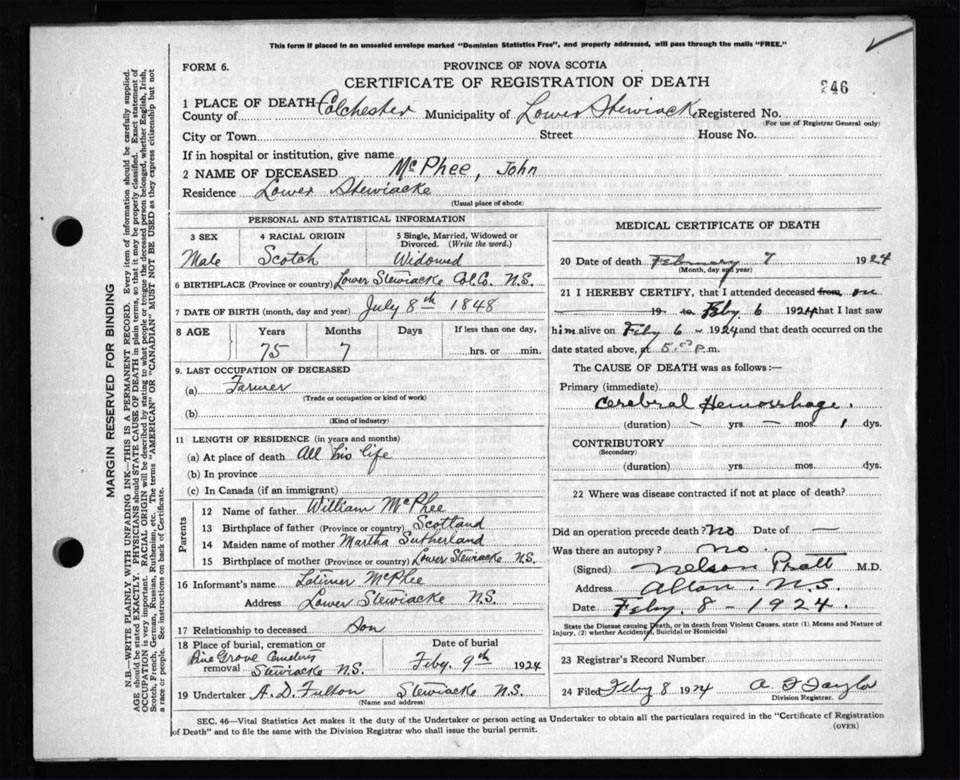 This form if placed in an unsealed envelope marked "Dominion Statistics Free", and properly addressed, will pass through the mails "FREE."
FORM 6.
PROVINCE OF NOVA SCOTIA
CERTIFICATE OF REGISTRATION OF DEATH
246
1 PLACE OF DEATH
County of Colchester Municipality of Lower Stewiacke Registered No.
(For use of Registrar General only)
City or Town Street House No.
If in hospital or institution, give name
2 NAME OF DECEASED McPhee, John
Residence Lower Stewiacke
(Usual place of abode)
PERSONAL AND STATISTICAL INFORMATION
3 SEX 4 RACIAL ORIGIN 5 Single, Married, Widowed or Divorced. (Write the word.)
Male Scotch Widowed
6 BIRTHPLACE (Province or country) Lower Stewiacke Col. Co. N.S.
7 DATE OF BIRTH (month, day and year) July 8th 1848
8 AGE Years Months Days If less than one day,
75 7 hrs. or min.
9. LAST OCCUPATION OF DECEASED
(a) Farmer
(Trade or occupation or kind of work)
(b)
(Kind of industry)
11 LENGTH OF RESIDENCE (in years and months)
(a) At place of death All his life
(b) In province
(c) In Canada (if an immigrant)
Parents
12 Name of father William McPhee
13 Birthplace of father (Province or country) Scotland
14 Maiden name of mother Martha Sutherland
15 Birthplace of mother (Province or country) Lower Stewiacke N.S.
16 Informant's name Latimer McPhee
Address Lower Stewiacke N.S.
17 Relationship to deceased Son
18 Place of burial, cremation or removal Date of burial
Pine Grove Cemetery
Stewiacke N.S. Feby. 9th 1924
19 Undertaker A. D. Fulton Stewiacke N.S.
(Name and address)
MEDICAL CERTIFICATE OF DEATH
20 Date of death February 7 1924
(Month, day and year)
21 I HEREBY CERTIFY, that I attended deceased from on
19 to Feby 6 1924 that I last saw
him alive on Feby 6 - 1924 and that death occurred on
date stated above, at 5.00 p.m.
The CAUSE OF DEATH was as follows:—
Primary (immediate)
Cerebral Hemorrhage.
(duration) - yrs - mos. 1 dys.
CONTRIBUTORY
(Secondary)
(duration) yrs. mos. dys.
22 Where was disease contracted if not at place of death?
Did an operation precede death? No Date of —
Was there an autopsy? No.
(Signed) Nelson Pratt M.D.
Address Alton, N.S.
Date Feby. 8 - 1924.
State the Disease causing Death, or in death from Violent Causes, state (1) Means and Nature of
Injury, (2) whether Accidental, Suicidal or Homicidal
23 Registrar's Record Number
24 Filed Feby 8 1924 A. F. Taylor
Division Registrar.
SEC. 46—Vital Statistics Act makes it the duty of the Undertaker or person acting as Undertaker to obtain all the particulars required in the "Certificate of Registration
of Death" and to file the same with the Division Registrar who shall issue the burial permit.
(OVER)
MARGIN RESERVED FOR BINDING
N.B.—WRITE PLAINLY WITH UNFADING INK—THIS IS A PERMANENT RECORD. Every item of information should be carefully supplied.
AGE should be stated EXACTLY. PHYSICIANS should STATE CAUSE OF DEATH in plain terms, so that it may be properly classified. Exact statement of
OCCUPATION is very important. RACIAL ORIGIN will be described by stating to what people or tongue the deceased person belonged, whether English, Irish,
Scotch, French, German, Russian, Ruthenian, etc. The terms "AMERICAN" OR "CANADIAN" MUST NOT BE USED as they express citizenship but not
a race or people. See instructions on back of Certificate.